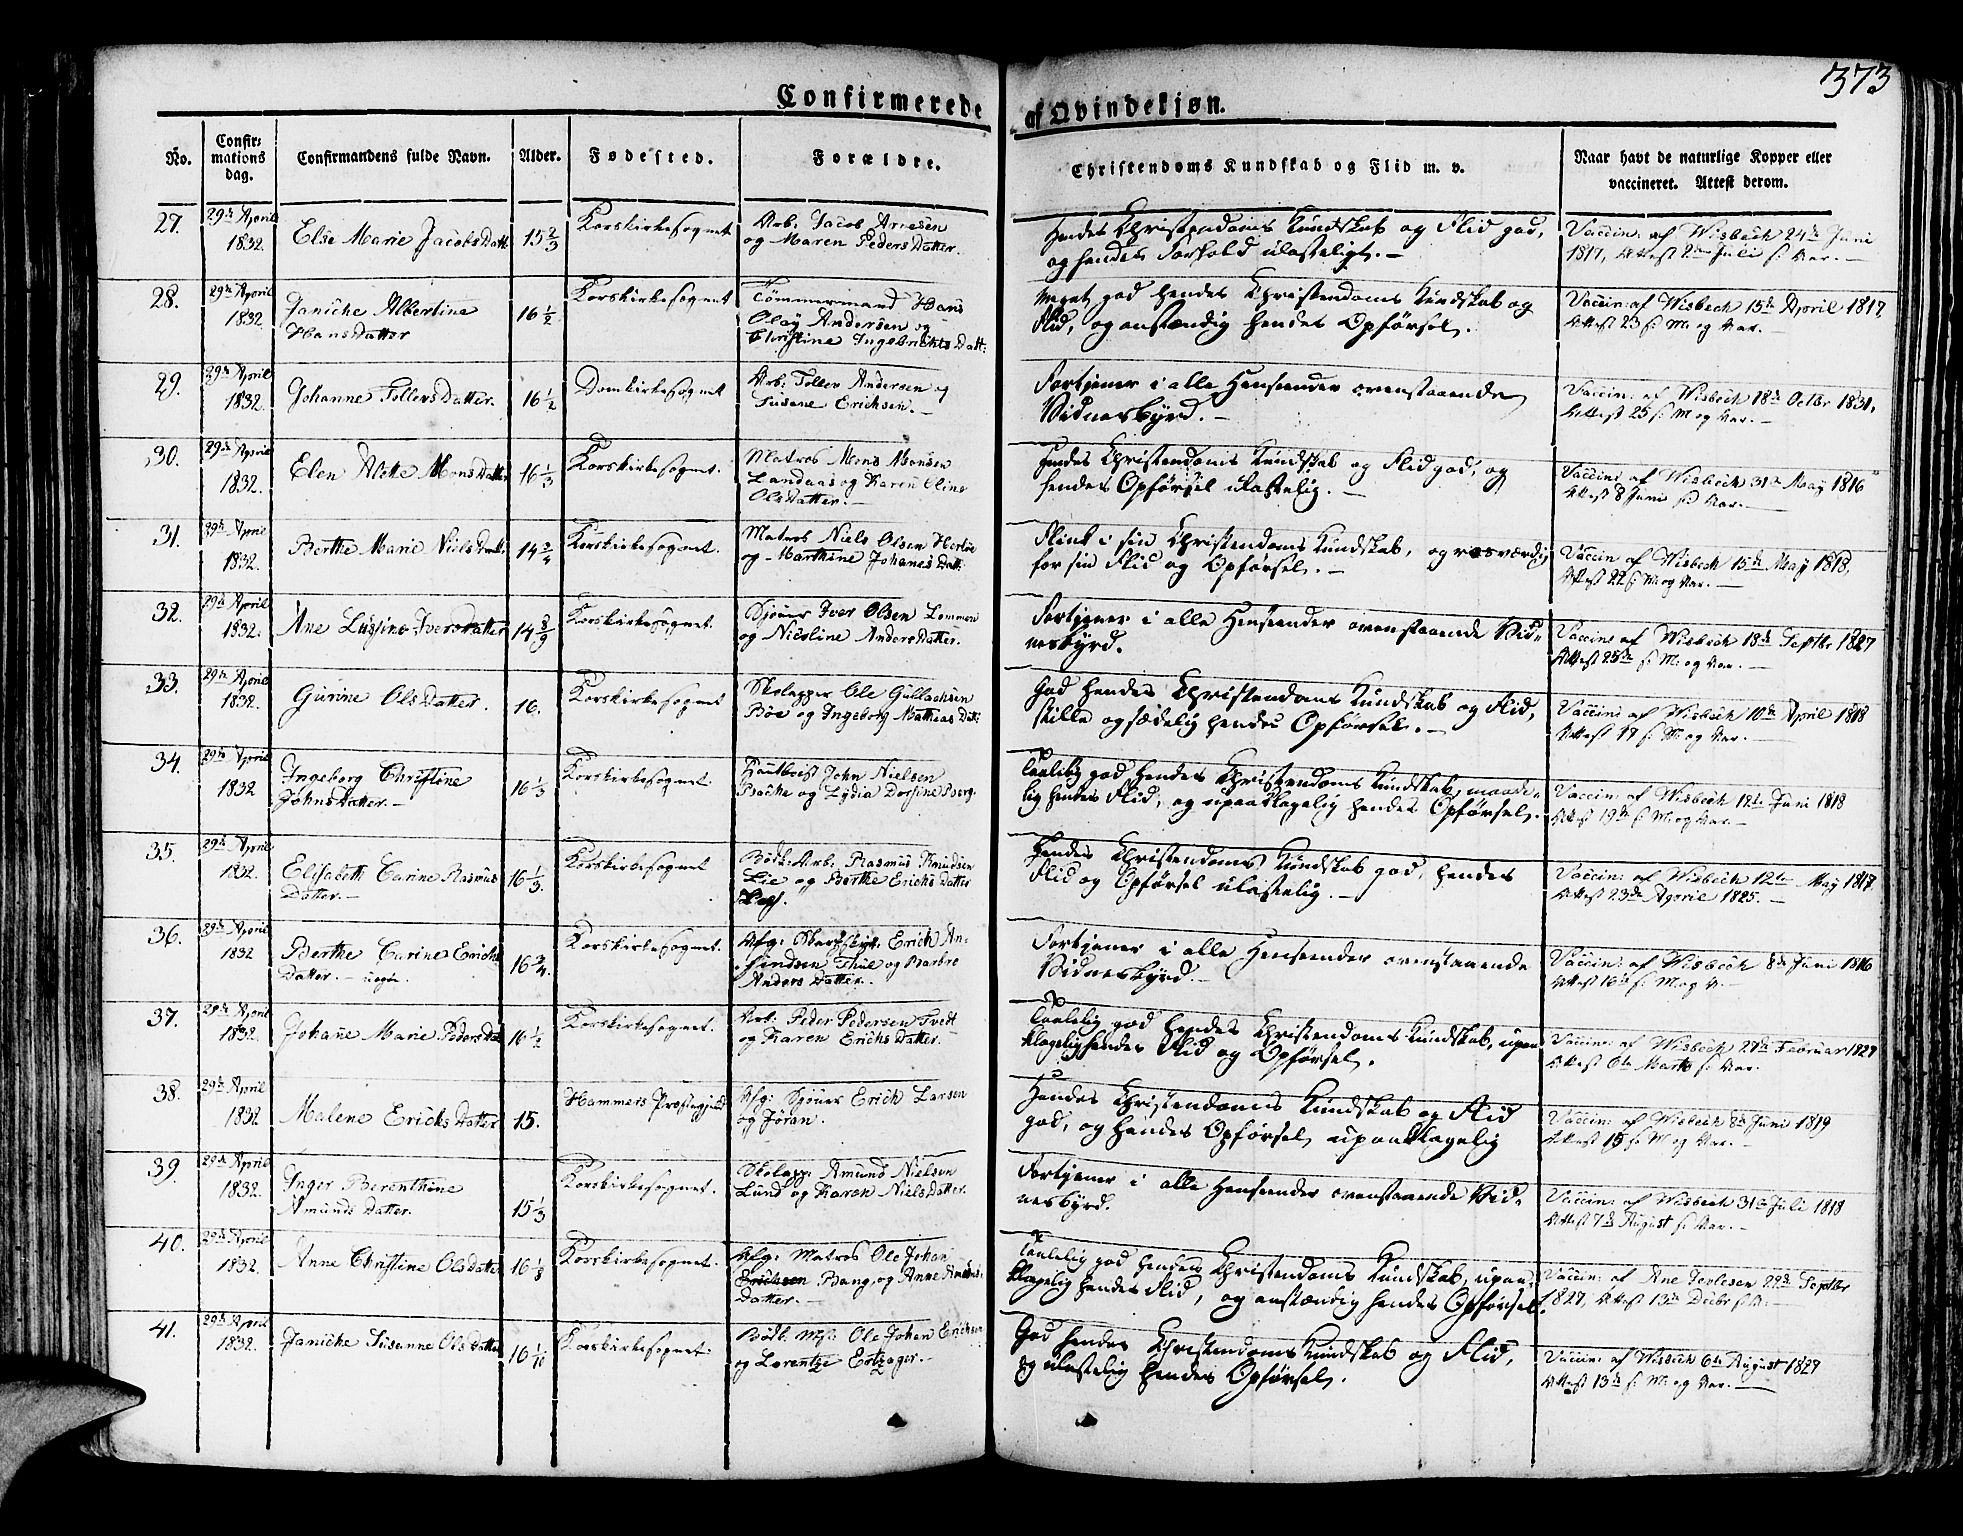 373
Confirmerede af Qvindekjøn.
No.
Confir-
mations
dag.
Confirmandens fulde Navn.
Alder.
Fødested.
Forældre.
Christendoms Kundskab og Flid m. v.
Naar havt de naturlige Kopper eller
vaccineret. Attest derom.
27.
29de April
1832.
Else Marie JacobsDatt
15 2/3
Korskirkesognet
Arb. Jacob Arnesen
og Maren PedersDatter.
Hendes Christendoms Kundskab og Flid god,
og hendes Forhold ulasteligt. —
Vaccin: af Wisbech 24de Juni
1817, Attest 2den Juli s: Aar. —
28.
29de April
1832
Janiche Albertine
HansDatter
16 1/2
Korskirkesognet
Tømmermand Hans
Olaÿ Andersen og
Christine IngebrichtsDatt:
Meget god hendes Christendoms Kundskab og
Flid, og anstændig hendes Opførsel.
Vaccin: af Wisbech 15de April 1817
Attest 23 s: M: og Aar. —
29.
29de April
1832.
Johanne TollersDatter.
16 1/2
Domkirkesognet
Arb: Toller Andersen og
Susane Erichsen. —
Fortjener i alle Henseender ovenstaaende
Vidnesbyrd. —
Vaccin: af Wisbech 18de Octbr 1831,
Attest 25 s: M: og Aar. —
30.
29de April
1832.
Elen Alette MonsDatter
16 1/3
Korskirkesognet.
Matros Mons Monsen
Landaas og Karen Oline
OlsDatter. —
Hendes Christendoms Kundskab og Flid god, og
hendes Opførsel ulastelig. —
Vaccin: af Wisbech 31te Maÿ 1816
Attest 8 Juni s: Aar. —
31.
29de April
1832.
Berthe Marie NielsDatt:
14 3/4
Korskirkesognet.
Matros Niels Olsen
og Marthine JohanesDatt:
Flink i sin Christendoms Kundskab, og rosværdig
for sin Flid og Opførsel. —
Vaccin af Wisbech 15de Maÿ 1818,
Attest 22 s: M: og Aar. —
32.
29de April
1832.
Ane IversDatter
14 8/9
Korskirkesognet.
Sjouer Iver Olsen Lommen
og Nicoline AndersDatter.
Fortjener i alle Henseender ovenstaaende Vid-
nesbyrd.
Vaccin: af Wisbech 18de Septbr 1827
Attest 25de s: M: og Aar. —
33.
29de April
1832.
Gurine OlsDatter.
16.
Korskirkesognet
Skolapper Ole Gullachsen
Böe og Ingeborg MathiasDatt:
God hendes Christendoms Kundskab og Flid,
stille og sædelig hendes Opførsel. —
Vaccin: af Wisbech 10de April 1818
Attest 17 s: M: og Aar. —
34.
29de April
1832
Ingeborg Christine
JohnsDatter. —
16 1/3
Korskirkesognet.
Hautboist John Nielsen
Bache og Lÿdia Dorsine Berg.
Taalelig god hendes Christendoms Kundskab, maade-
lig hendes Flid, og upaaklagelig hendes Opførsel.
Vaccin: af Wisbech 12te Juni 1818
Attest 19de s: M: og Aar. —
35.
29de April
1832.
Elisabeth Carine Rasmus
Datter. —
16 1/3.
Korskirkesognet
Bödk: Arb: Rasmus Knudsen
Lie og Berthe ErichsDatter
Hendes Christendoms Kundskab god, hendes
Flid og Opførsel ulastelig. —
Vaccin: af Wisbech 12te Maÿ 1817.
Attest 23de April 1825. —
36.
29de April
1832
Berthe Carine Erichs
Datter. —
16 3/4.
Korskirkesognet.
Afg: Erich An-
findsen Thue og Barbro
AndersDatter.
Fortjener i alle Henseender ovenstaaende
Vidnesbyrd. —
Vaccin: af Wisbech 8de Juni 1816
Attest 16de s: M: og A. —
37.
29de April
1832.
Johane Marie PedersDat
16 1/2
Korskirkesognet.
Arb: Peder Pedersen Tvedt
og Karen ErichsDatter.
Taalelig god hendes Christendoms Kundskab, upaa-
klagelig hendes Flid og Opførsel.
Vaccin: af Wisbech 27de Februar 1827
Attest 6te Marts s: Aar.
38.
29de April
1832
Malene ErichsDatter
15.
Hammers Præstegjeld
Afg: Sjouer Erich Larsen
og Jøran.
Hendes Christendoms Kundskab og Flid
god, og hendes Opførsel upaaklagelig
Vaccin: af Wisbech 8de Juni 1819
Attest 15 s: M: og Aar. —
39.
29de April
1832.
Inger Berenthine
AmundsDatter.
15 1/3
Korskirkesognet.
Skolapp: Amund Nielsen
Lund og Karen NielsDatter.
Fortjener i alle Henseender ovenstaaende Vid-
nesbyrd.
Vaccin: af Wisbech 31te Juli 1818
Attest 7de August s: Aar. —
40.
29de April
1832.
Anne Christine OlsDatter
16 1/8
Korskirkesognet.
Afg: Matros Ole Johan
Erichsen Bang, og Anne
Datter. —
Taalelig god hendes Christendoms Kundskab, upaa-
klagelig hendes Flid, og anstændig hendes Opførsel.
Vaccin: af Ane 22de Septbr
1827, Attest 13de Decbr s: A: —
41.
29de April
1832.
Janiche Susanne OlsDatter
16 1/10
Korskirkesognet.
Bödk. Ole Johan Erichsen
og Lorentze Ertzager. —
God hendes Christendoms Kundskab og Flid,
og ulastelig hendes Opførsel.
Vaccin: af Wisbech 6te August 1827
Attest 13de s: M: og Aar. —